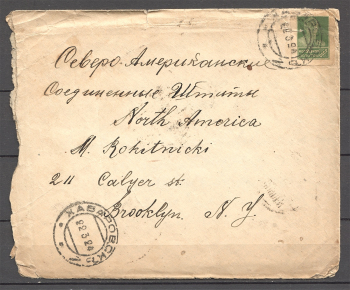 Северо-Американские
Соединенные Штаты
North America
M. Rokitnicki
211 Calyer st.
Brooklyn. N. Y.
ХАБАРОВСК
22 3 24